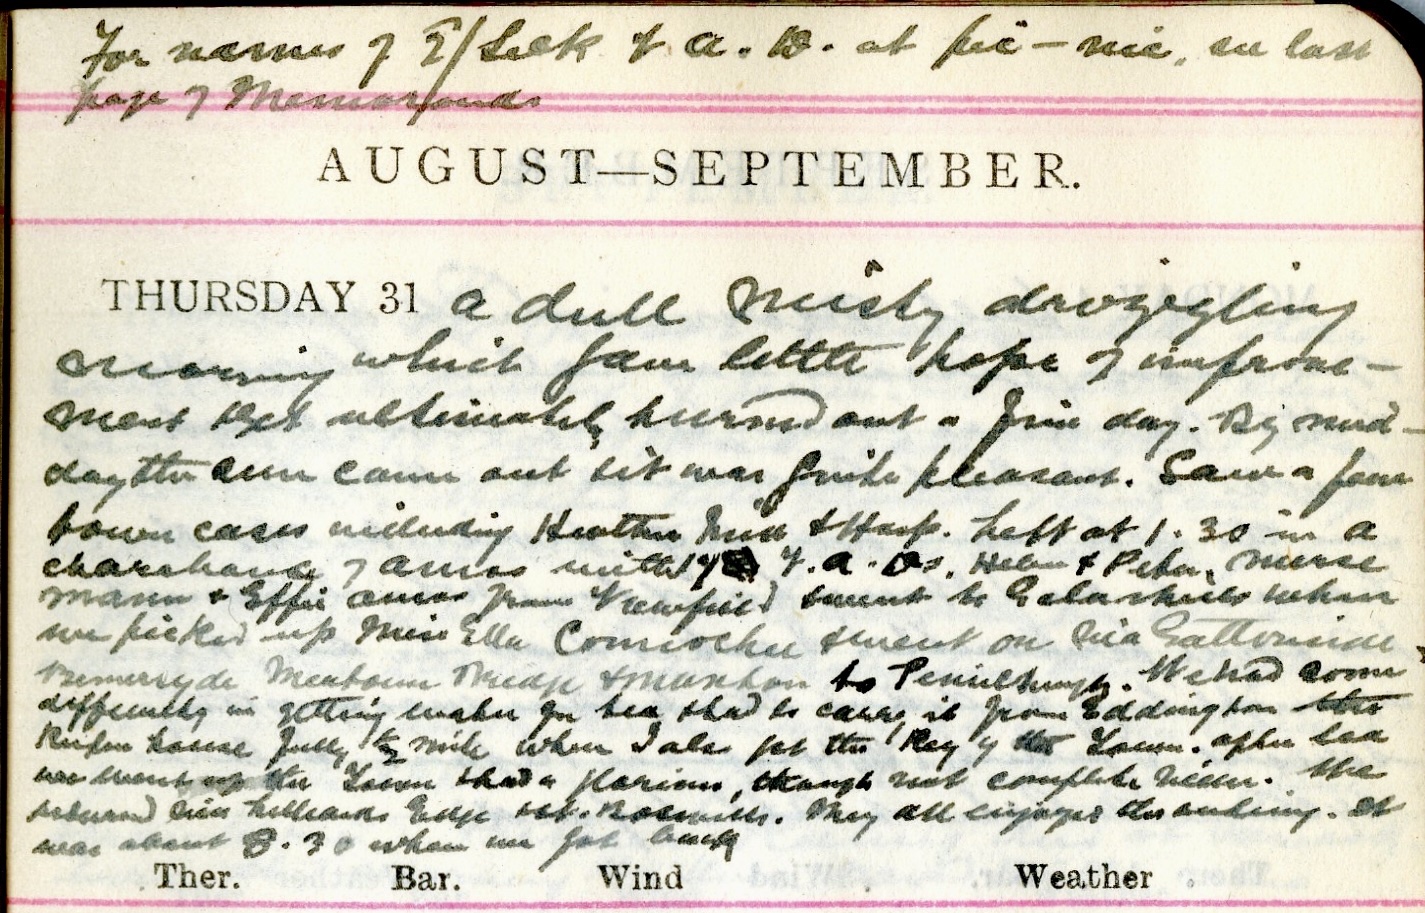 For names of & V. A. D. at pic-nic, see last
page of Memoranda
AUGUST—SEPTEMBER.
THURSDAY 31 a dull misty drizzling
morning which gave little hope of improve-
ment but ultimately turned out a fine day. By mid-
day the sun came out & it was quite pleasant. Saw a few
town cases including Heather Mill & Hosp. Left at 1.30 in a
charabanc of Amos with 17 V.A.Ds, Helen & Peter, Nurse
Mann & Effie Amos from Viewfield & went to Galashiels where
we picked up Miss Ella & went on via Gattonside
Bemersyde Mertoun Bridge & Maxton to Penielheugh. We had some
difficulty in getting water for tea & had to carry it from Eddington
house fully ½ mile where I also got the key of the Tower. After tea
we went up the Tower & had a glorious, though not complete view. We
returned via Lilliards Edge & St. Boswells. They all enjoyed the outing. It
was about 8.30 when we got back
Ther. Bar. Wind Weather